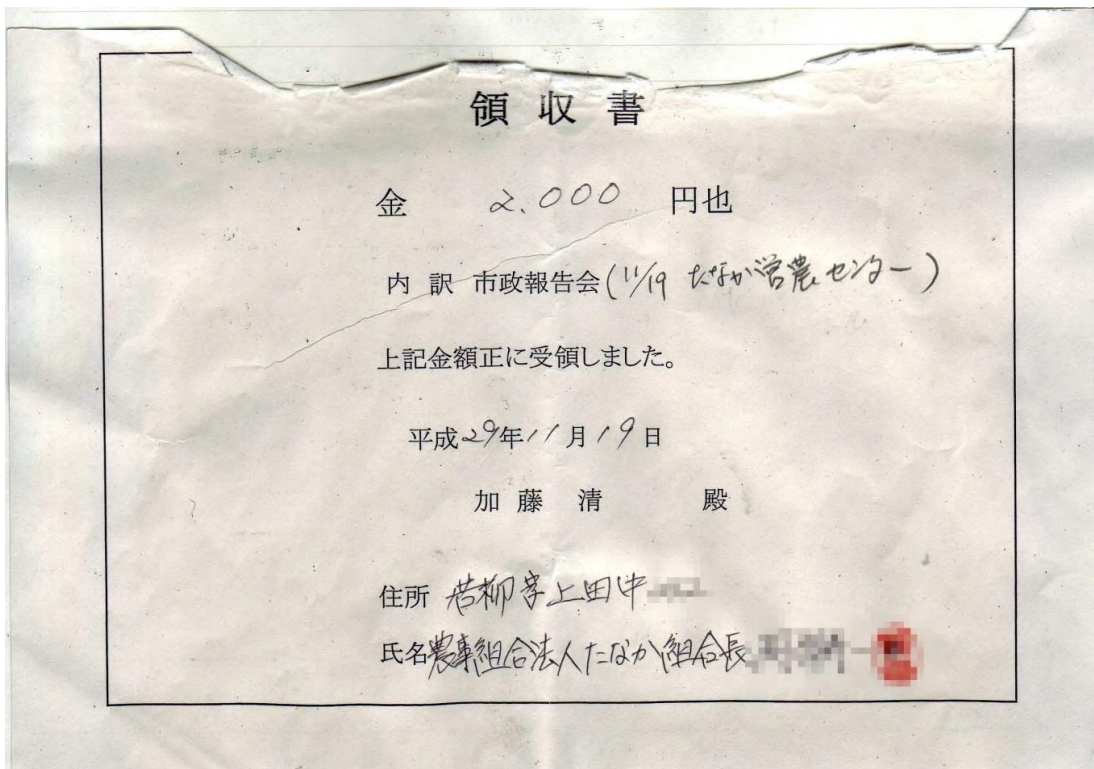 領収書
金 2.000 円也
内訳 市政報告会(11/19 たなか営農センター)
上記金額正に受領しました。
平成29年11月19日
加藤清 殿
住所 若柳字上田中
氏名 農事組合法人たなか組合長